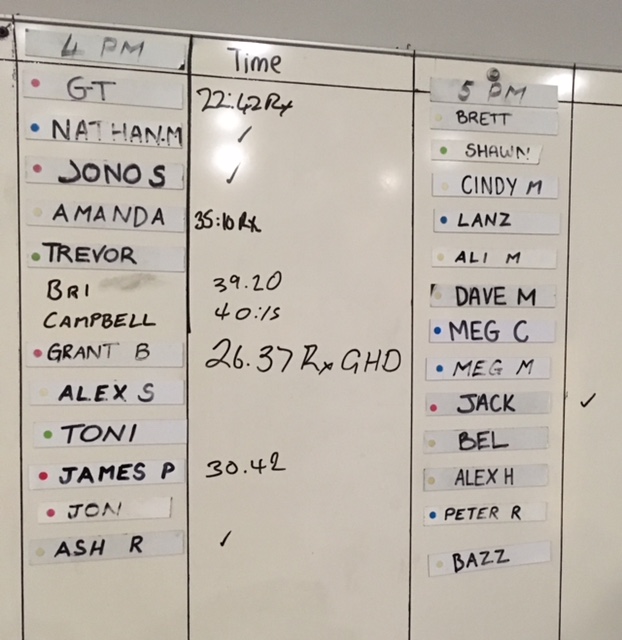 4 PM Time
GT 22:42 Rx
NATHAN.M ✓
JONO S ✓
AMANDA 35:10 Rx
TREVOR
BRI 39.20
CAMPBELL 40:15
GRANT B 26.37 Rx GHD
ALEX S
TONI
JAMES P 30.42
JON
ASH R ✓
5 PM
BRETT
SHAWN
CINDY M
LANZ
ALI M
DAVE M
MEG C
MEG M
JACK ✓
BEL
ALEX H
PETER R
BAZZ